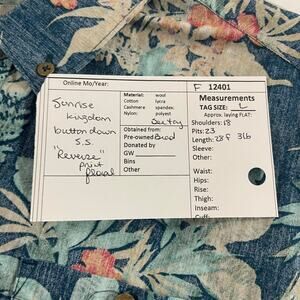 Online Mo/Year:
F 12401
Sunrise
kingdom
button down
S.S.
"Reverse"
print
floral
Material: wool
Cotton lycra
Cashmere spandex
Nylon: polyest
See tag
Obtained from:
Pre-owned Brad
Donated by
GW
Bins
Other
Measurements
TAG SIZE: L
Approx. laying FLAT:
Shoulders: 18
Pits: 23
Length: 28f 31b
Sleeve:
Other:
Waist:
Hips:
Rise:
Thigh:
Inseam:
Cuff: